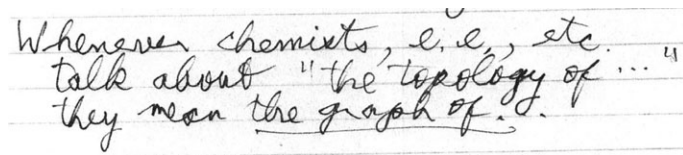 Whenever chemists, e.e., etc.
talk about "the topology of ..."
they mean the graph of...